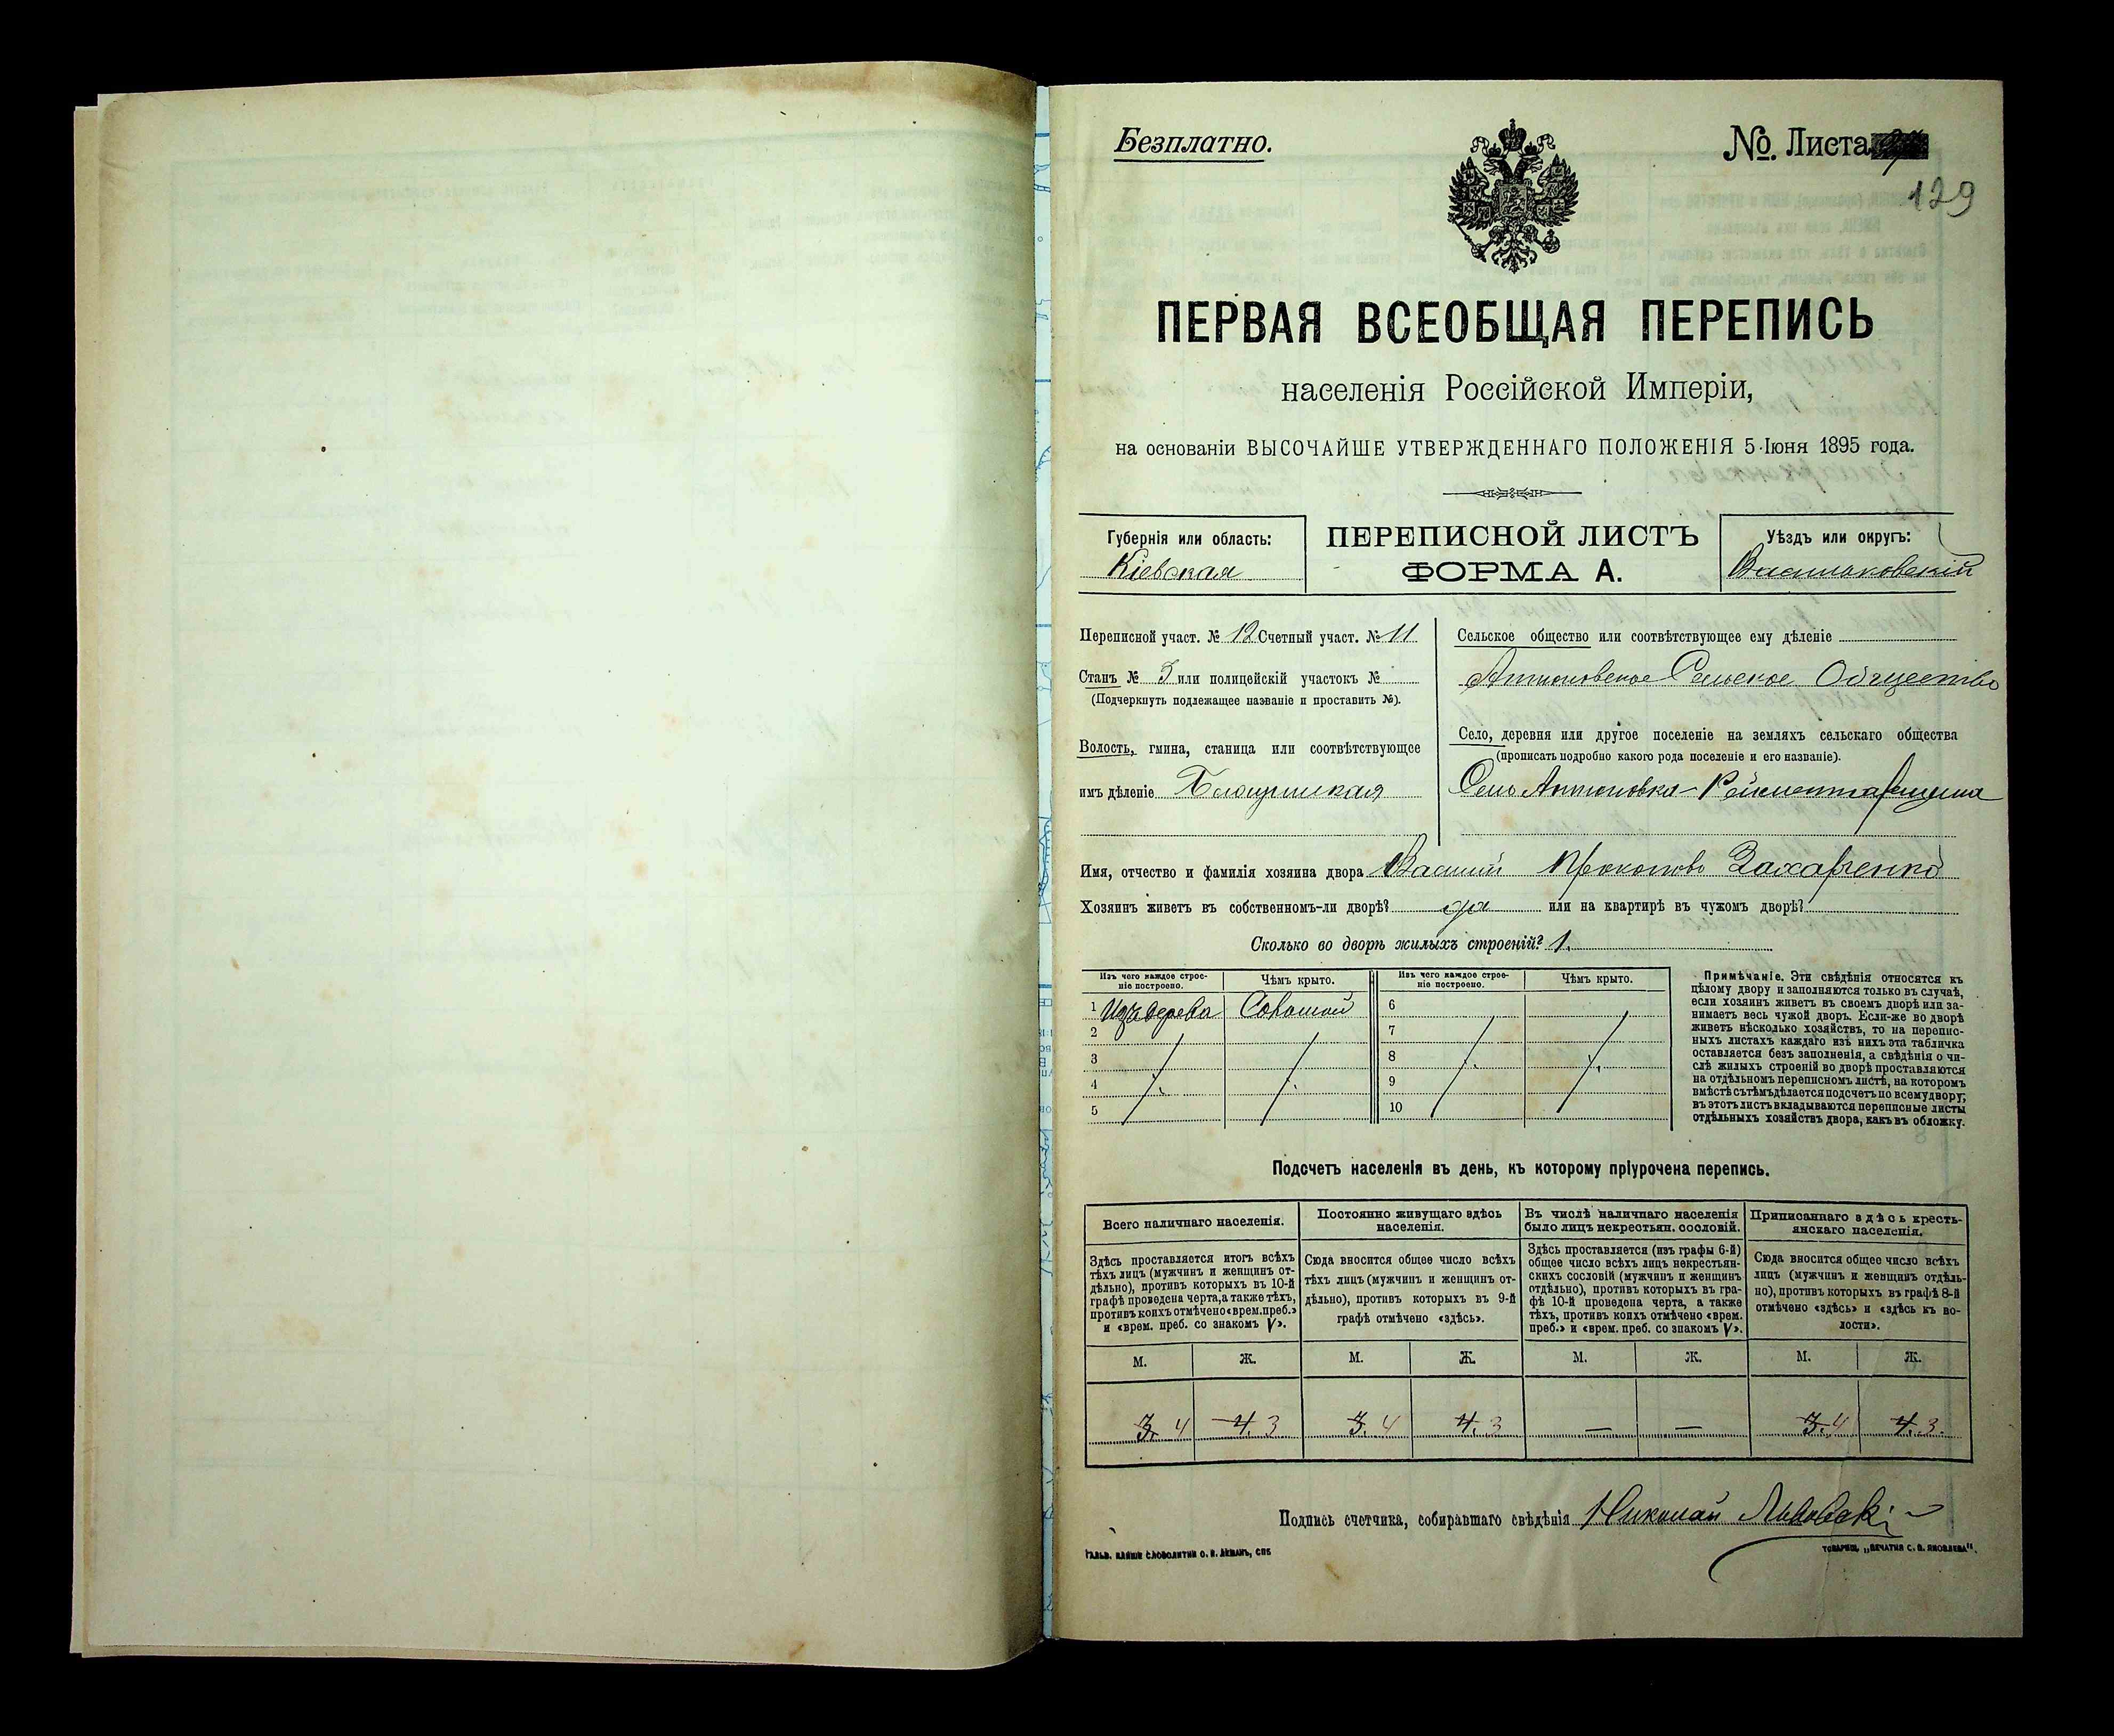 Безплатно.
№ Листа
129
ПЕРВАЯ ВСЕОБЩАЯ ПЕРЕПИСЬ
населенія Россійской Имперіи,
на основаніи ВЫСОЧАЙШЕ УТВЕРЖДЕННАГО ПОЛОЖЕНІЯ 5 Іюня 1895 года.
Губернія или область:
Кіевская
ПЕРЕПИСНОЙ ЛИСТЪ
ФОРМА А.
Уѣздъ или округъ:
Васильковскій
Переписной участ. № 12 Счетный участ. № 11
Станъ № 3 или полицейскій участокъ №
(Подчеркнуть подлежащее названіе и проставить №).
Волость, гмина, станица или соотвѣтствующее
имъ дѣленіе
Сельское общество или соотвѣтствующее ему дѣленіе
Антоновское Сельское Общество
Село, деревня или другое поселеніе на земляхъ сельскаго общества
(прописать подробно какого рода поселеніе и его названіе).
Село Антоновка-
Имя, отчество и фамилія хозяина двора Василій Прокоповъ Захарченко
Хозяинъ живетъ въ собственномъ-ли дворѣ? да или на квартирѣ въ чужомъ дворѣ?
Сколько во дворѣ жилыхъ строеній? 1.
Изъ чего каждое строе-
ніе построено.
Чѣмъ крыто.
Изъ чего каждое строе-
ніе построено.
Чѣмъ крыто.
1 Изъ дерева Соломой 6
2 7
3 8
4 9
5 10
Примѣчаніе. Эти свѣдѣнія относятся къ
цѣлому двору и заполняются только въ случаѣ,
если хозяинъ живетъ въ своемъ дворѣ или за-
нимаетъ весь чужой дворъ. Если-же во дворѣ
живетъ нѣсколько хозяйствъ, то на перепис-
ныхъ листахъ каждаго изъ нихъ эта табличка
оставляется безъ заполненія, а свѣдѣнія о чи-
слѣ жилыхъ строеній во дворѣ проставляются
на отдѣльномъ переписномъ листѣ, на которомъ
вмѣстѣ съ тѣмъ дѣлается подсчетъ по всему двору;
въ этотъ листъ вкладываются переписные листы
отдѣльныхъ хозяйствъ двора, какъ въ обложку.
Подсчетъ населенія въ день, къ которому пріурочена перепись.
Всего наличнаго населенія.
Здѣсь проставляется итогъ всѣхъ
тѣхъ лицъ (мужчинъ и женщинъ от-
дѣльно), противъ которыхъ въ 10-й
графѣ проведена черта, а также тѣхъ,
противъ коихъ отмѣчено «врем. преб.»
и «врем. преб. со знакомъ V».
Постоянно живущаго здѣсь
населенія.
Сюда вносится общее число всѣхъ
тѣхъ лицъ (мужчинъ и женщинъ от-
дѣльно), противъ которыхъ въ 9-й
графѣ отмѣчено «здѣсь».
Въ числѣ наличнаго населенія
было лицъ некрестьян. сословій.
Здѣсь проставляется (изъ графы 6-й)
общее число всѣхъ лицъ некрестьян-
скихъ сословій (мужчинъ и женщинъ
отдѣльно), противъ которыхъ въ гра-
фѣ 10-й проведена черта, а также
тѣхъ, противъ коихъ отмѣчено «врем.
преб.» и «врем. преб. со знакомъ V».
Приписаннаго здѣсь кресть-
янскаго населенія.
Сюда вносится общее число всѣхъ
лицъ (мужчинъ и женщинъ отдѣль-
но), противъ которыхъ въ графѣ 8-й
отмѣчено «здѣсь» и «здѣсь къ во-
лости».
М. Ж. М. Ж. М. Ж. М. Ж.
3. 4 4. 3 3. 4 4. 3 — — 3. 4 4. 3.
Подпись счетчика, собиравшаго свѣдѣнія Николай
ТОВАРИЩ. „ПЕЧАТНЯ С. П. ЯКОВЛЕВА“.